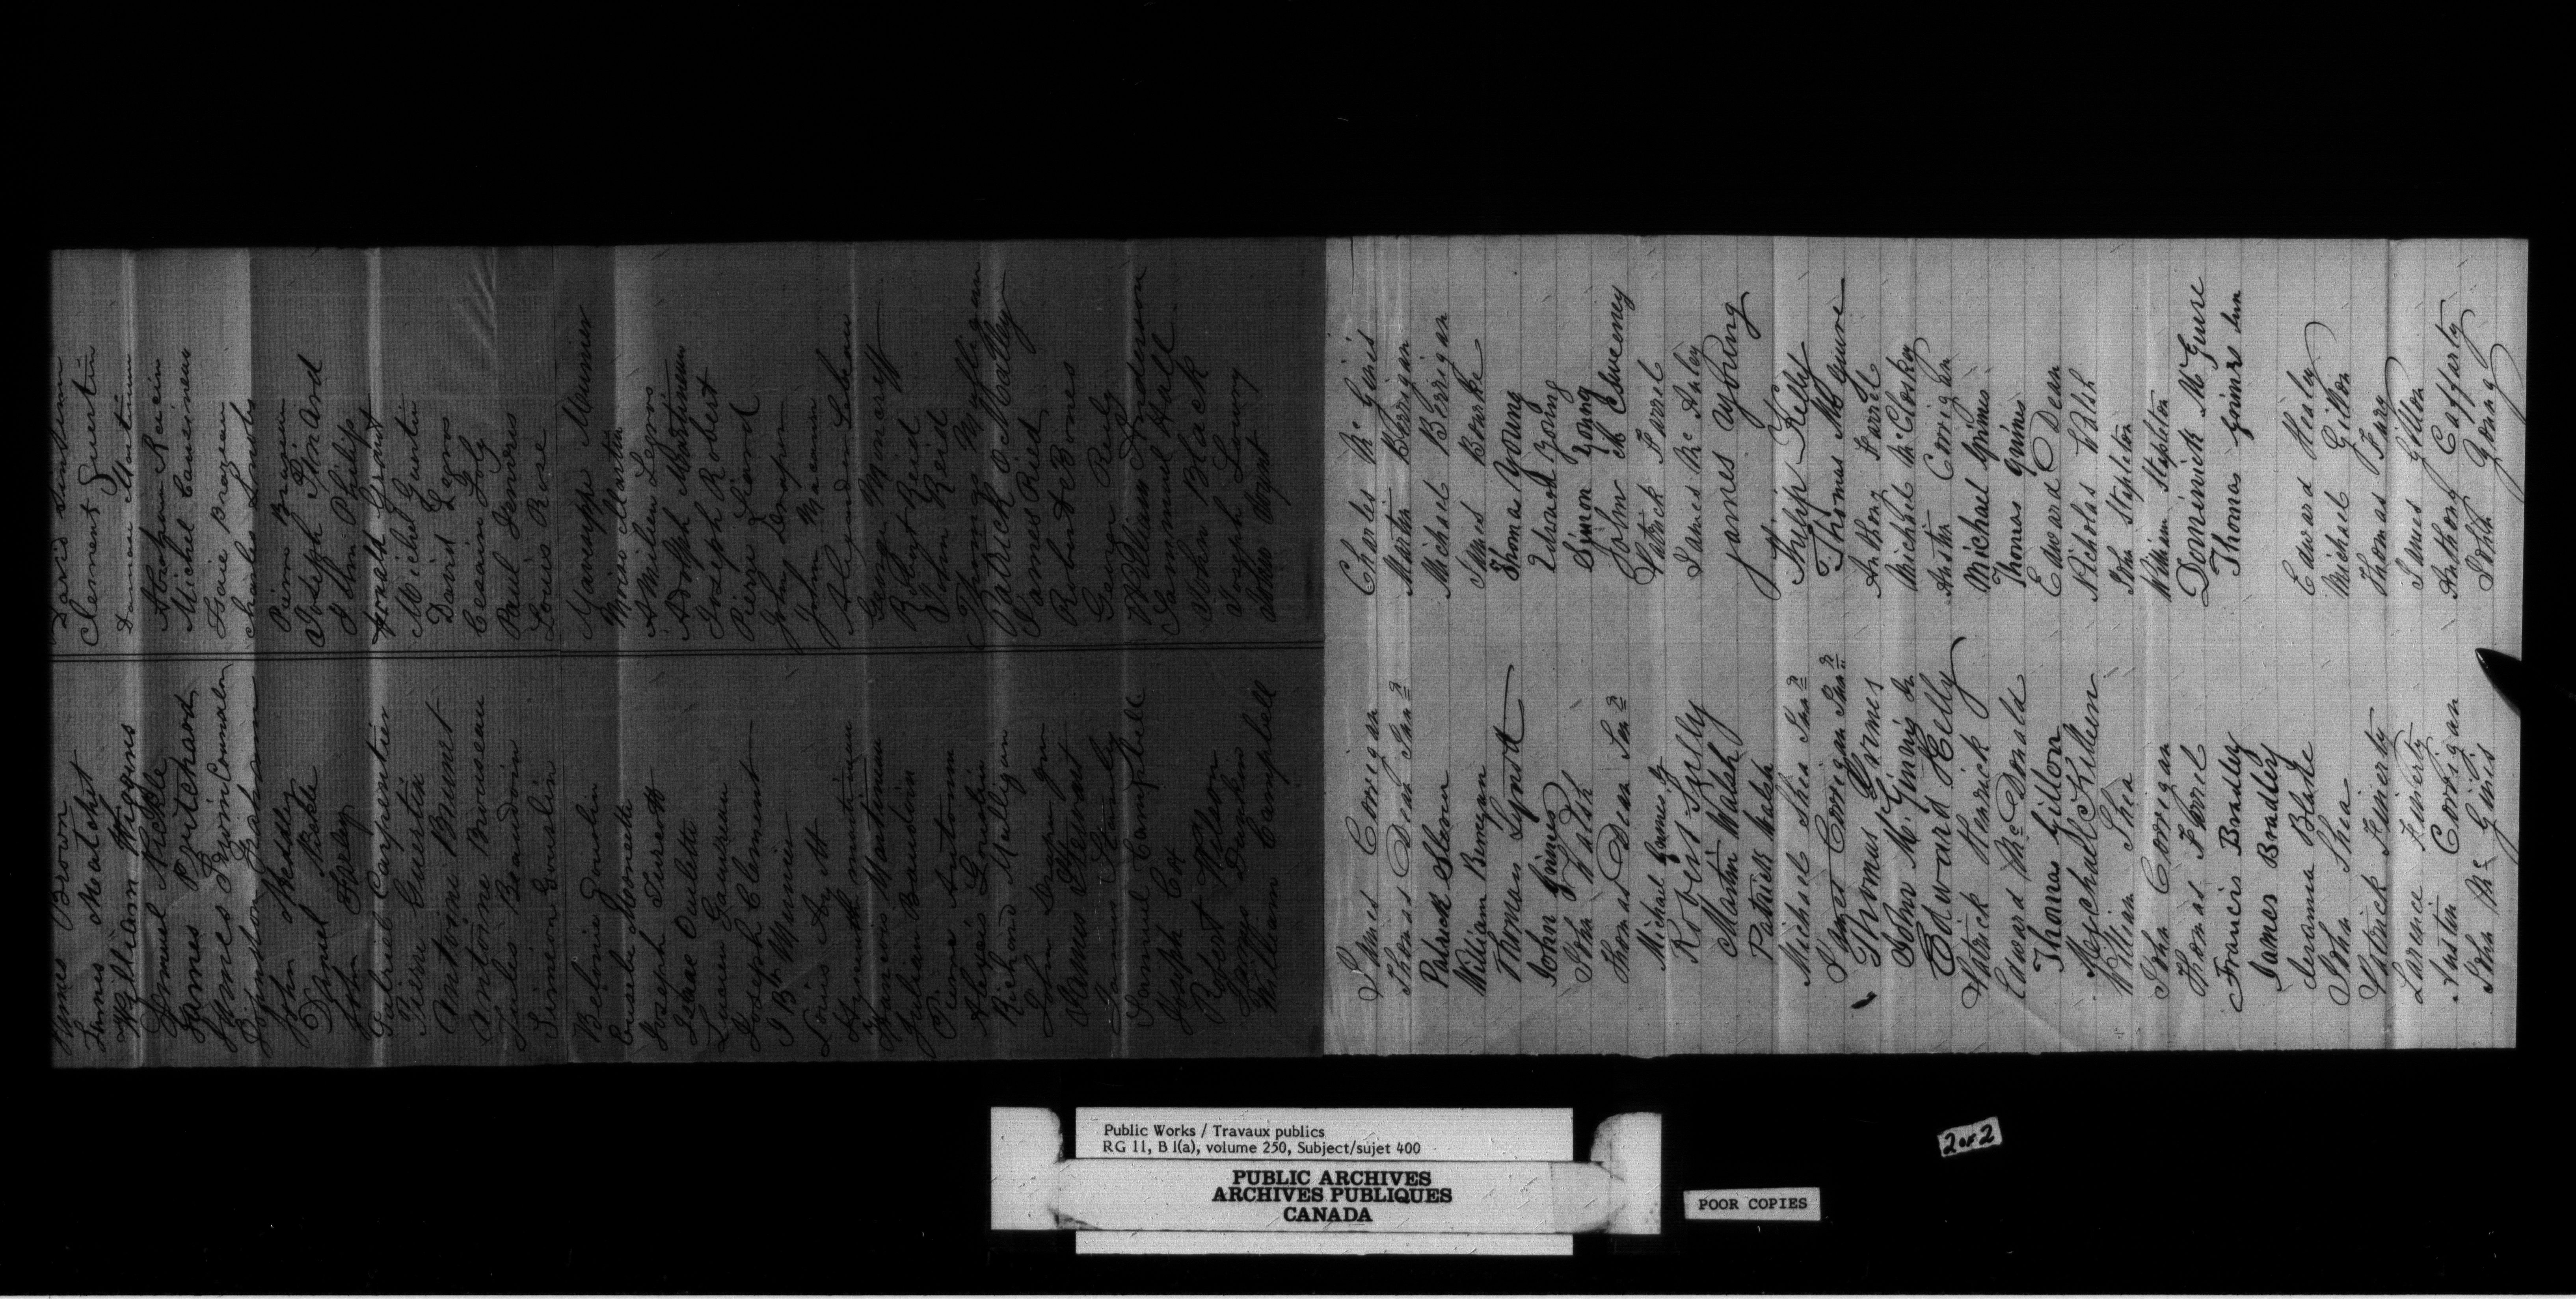 James Brown
James Matchet
William Wiggins
Samuel Nickle
James Pritchard
James
Johnston
John Meddly
Daniel Nickle
John
Gabriel Carpentier
Pierre Guertin
Antoine Brunet
Antoine Brouiseau
Jules Beaudoin
Simeon Gouslin
Belonie
Eusebe Monette
Joseph Turcott
Isaac Oulette
Lucien Gauvreau
Joseph Clement
J Bte Munier
Louis
Hyacinth martineau
Francois Martineau
Julian Baudoin
Pierre Antoine
Alexis Gouslin
Richard Mulligan
John Draper Jnr
James Stewart
James Stanly
Samuel Campbell
Joseph Cox
Robert Nelson
James
William Campbell
David
Clement Guertin
Damase Martineau
Abraham Racein
Michel Causineau
Isaie Brazeau
Charles
Pierre Brazeau
Joseph Pinard
John Philip
Joseph Groux
Michel Guertin
David Legros
Cessain Joly
Paul
Louis Rose
Munier
Moise Martin
Amilien Legros
Adolph Martineau
Joseph Robert
Pierre Picard
John Draper
John
Alexander Lebeau
George Moncreff
Robert Reid
John Reid
Thomas Mulligan
Patrick O Malley
James Ried
Robert Bones
George Rely
William Anderson
Sammuel Hall
John Black
Joseph Loury
John
James Corrigan
Thomas Dean Junr
Patrick Sloan
William
Thomas Lynott
John Grimes
John Walsh
Thomas Dean Senr
Michael
Robert
Martin Walsh
Patrick Walsh
Michael Shea Junr
James Corrigan Junr
Thomas Grimes
John Mc Ginnis Jr
Edward Kelly
Patrick
Edward McDonald
Thomas Gillon
Michael Killeen
William Shea
John Corrigan
Thomas Farrel
Francis Bradley
James Bradley
John Shea
Patrick Finerty
Larence Finerty
Austin Corrigan
John Mc Ginis
Charles Mc Ginis
Martin Berrigan
Michael Berrigan
James Bourke
Thomas Young
Edward Young
Simon Young
John Mc Elweeney
Patrick Farrel
James Mc Anley
James Aybung
Philip Kelly
Thomas McGuire
Anthony Farrel
Michael McClosky
Austin Corrigan
Michael Grimes
Thomas Grimes
Edward Dean
Nicholas Walsh
John Stapleton
William Stapleton
Dominick McGuire
Thomas Grimes Sen
Edward Healey
Michael Gillon
Thomas Fury
James Gillon
Anthony Cafferty
John Young
Public Works / Travaux publics
RG 11, B 1(a), volume 250, Subject/sujet 400
PUBLIC ARCHIVES
ARCHIVES PUBLIQUES
CANADA
2 of 2
POOR COPIES